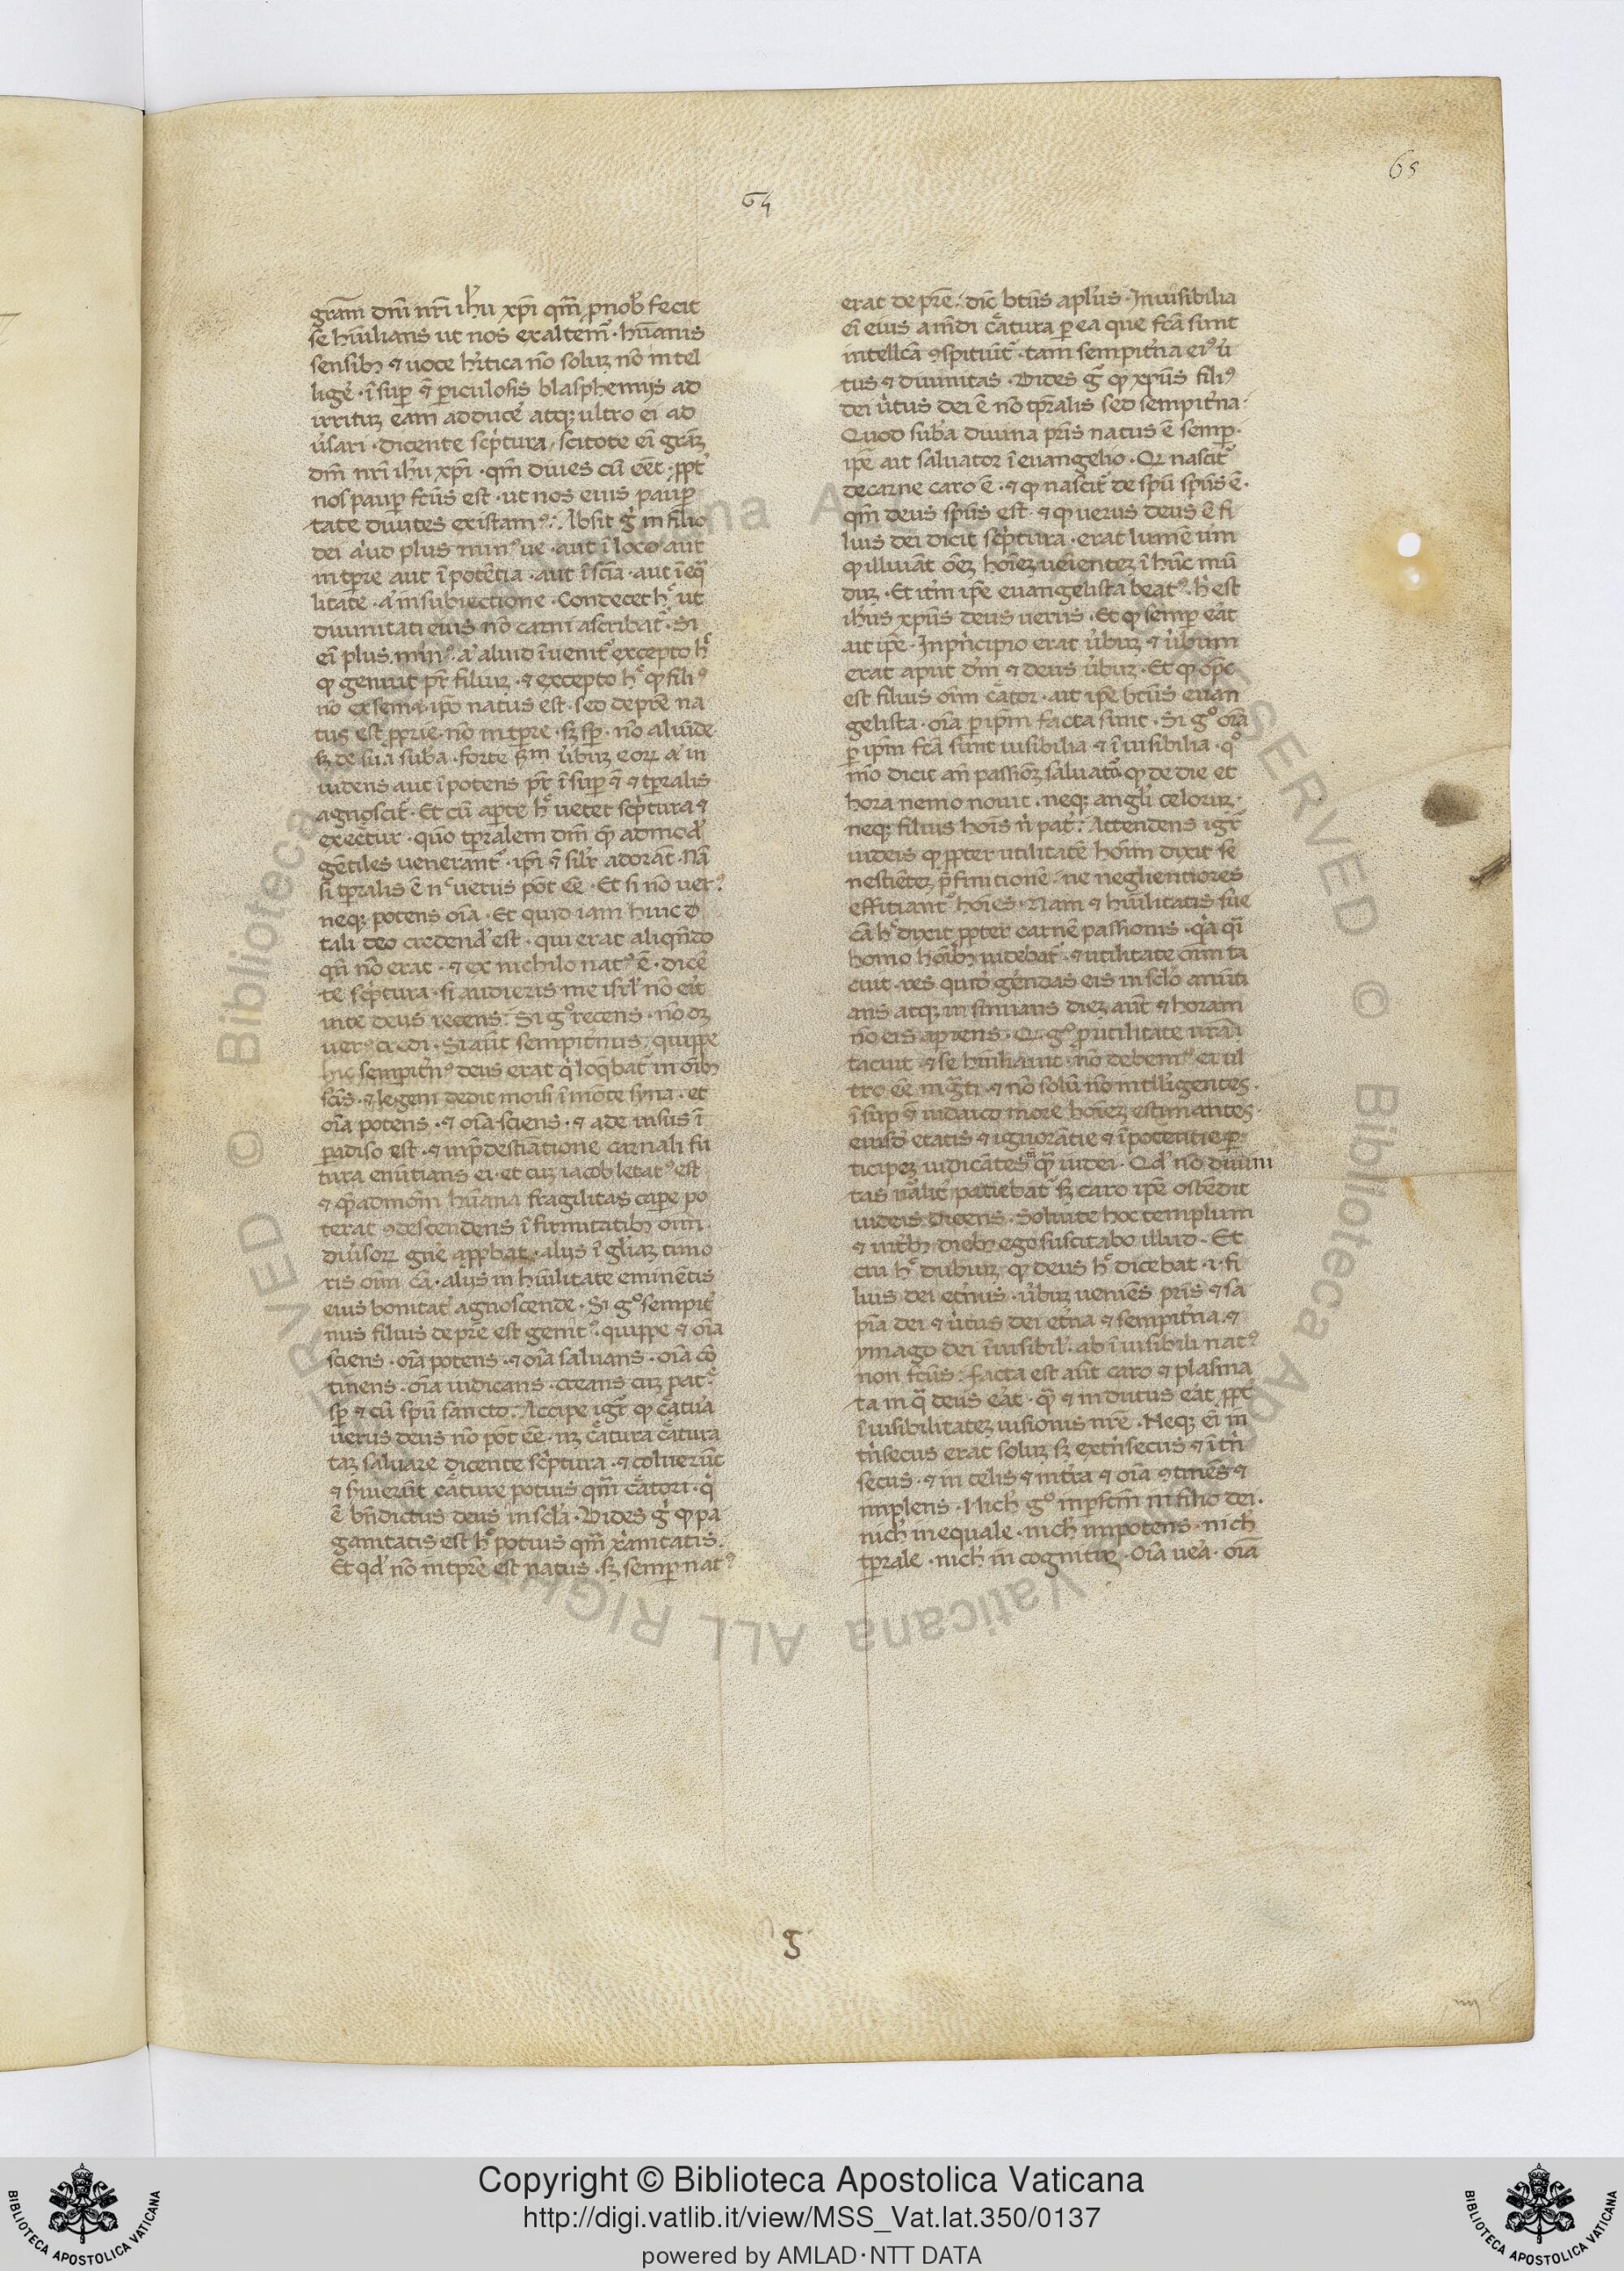 65
64
gr̄am dn̄i nr̄i ih̄u xp̄i qm̄ ꝓ nob̄ fecit
se hūilians ut nos exaltem᷒ · hūanis
sensibꝫ ⁊ uoce h̄itica nō soluꝫ nō intel
ligē · īsuꝑ ⁊ ꝑiculosis blasphemijs ad
irrituꝫ eam adducē atqꝫ ultro ei ad
ūsari · dicente sc̄ptura · scitote ei gr̄aꝫ
dn̄i nr̄i ih̄u xp̄i · qm̄ diues cū eēt · ꝓpt̄
nos pauꝑ fc̄us est · ut nos eius pauꝑ
tate diuites existam᷒ · Absit ḡ in filio
dei a̍ud plus min᷒ ue · aut ī loco aut
in tp̄re aut ī potētia · aut ī sc̄ia · aut ī eq̄
litate · a̍ in subiectione · Condecet h᷒ ut
diuinitati eius nō carni ascribat᷒ · Si
ei plus min᷒ · a̍ aliud īuenit᷒ excepto h᷒
ꝙ genuit pr̄ filiuꝫ · ⁊ excepto h᷒ ꝙ fili᷒
nō ex semeipō natus est · sed de pr̄e na
tus est ꝓprie · nō in tp̄re · sꝫ sꝑ · nō aliunde
sꝫ de sua sub̄a · forte scd̄m ūbuꝫ eoꝝ a̍ in
uidens aut īpotens pr̄ īsuꝑ ⁊ ⁊ tp̄ralis
agnoscit᷒ · Et cū aꝑte h᷒ uetet sc̄ptura ⁊
execetur · quō tp̄ralem dm̄ qm̄ admod̄
gētiles uenerant᷒ · ip̄i ⁊ sil̄r adorāt · Nā
si tp̄ralis ē n᷒ uerus pōt eē · Et si nō uer᷒
neqꝫ potens oīa · Et quid iam huic d
tali deo credend̄ est · qui erat aliqn̄do
qn̄ nō erat · ⁊ ex nichilo nat᷒ ē · dicē
te sc̄ptura · si audieris me isr̄l nō eīt
in te deus recens · Si g᷒ recens · nō dꝫ
uer᷒ credi · Si aūt sempit̄nus · quippe
hic sempit̄n᷒ deus erat q̄ loq̄bat᷒ in oībꝫ
sc̄is · ⁊ legem dedit moisi ī mōte syna · et
oīa potens · ⁊ oīa sciens · ⁊ ade uisus ī
ꝑadiso est · ⁊ in p̄destiatione carnali fu
tura enūtians ei · et cuꝫ iacob letat᷒ est
⁊ qm̄admōm hūana fragilitas caꝑe po
terat ꝯdescendens ī firmitatibꝫ oīm
diuīsoꝝ gn̄e aꝓpbat · alijs ī gl̄iaꝫ timo
ris oīm cā · alijs in hūilitate eminētis
eius bonitat̄ agnoscende · Si g᷒ sempit̄
nus filius de pr̄e est genit᷒ · quippe ⁊ oīa
sciens · oīa potens · ⁊ oīa saluans · oīa cō
tinens · oīa iudicans · creans cuꝫ pat᷒
sꝑ ⁊ cū sp̄u sancto · Accipe igr̄ ꝙ c̄atura
uerus deus nō pōt eē · nꝫ c̄atura c̄atura
taꝫ saluare dicente sc̄ptura · ⁊ coluerūt
⁊ s̄uierūt c̄ature potius qm̄ c̄atori · q̄
ē bn̄dictus deus in sc̄la · Vides ḡ ꝙ pa
ganitatis est h᷒ potius qm̄ x̄anitatis ·
Et qd̄ nō in tp̄re est natus · sꝫ semꝑ nat᷒
erat de pr̄e · dic̄ bt̄us apl̄us · Inuisibilia
ei eius a mūdi c̄atura ꝑ ea que fc̄a sunt
intellc̄a ꝯspitiūt᷒ · tam sempit̄na ei᷒ ū
tus ⁊ diuinitas · Vides ḡ ꝙ xp̄us fili᷒
dei ūtus dei ē nō tp̄ralis sed sempit̄na ·
Quod sub̄a diuina pr̄is natus ē semꝑ ·
ip̄e ait saluator ī euangelio · Qꝫ nascit᷒
de carne caro ē · ⁊ ꝙ nascit᷒ de sp̄u sp̄us ē ·
qm̄ deus sp̄us est · ⁊ ꝙ uerus deus ē fi
lius dei dicit sc̄ptura · erat lumē uīm
ꝙ illuiāt oēꝫ hoīeꝫ uēientez ī hūc mū
duꝫ · Et it̄m ip̄e euangelista beat᷒ · h̄ est
ih̄us xp̄us deus uerus · Et ꝙ semꝑ eāt
ait ip̄e · In pn̄cipio erat ūbuꝫ ⁊ ūbum
erat aput dm̄ ⁊ deus ūbuꝫ · Et ꝙ oīpc
est filius oīm c̄ator · ait ip̄e bt̄us euan
gelista · oīa ꝑ ip̄m facta sunt · Si g᷒ oīa
ꝑ ip̄m fc̄a sunt uisibilia ⁊ īuisibilia · q᷒
mō dicit an̄ passiōeꝫ saluator̄ ꝙ de die et
hora nemo nouit · neqꝫ angl̄i celoruꝫ ·
neqꝫ filius hoīs n̄ pat̄ · Attendens igr̄
iudeis ꝙ ꝓpter utilitatē hoīm dixit se
nesciētez p̄finitionē · ne neglientiores
effitiant᷒ hoīes · Nam ⁊ hūilitatis sue
cā h᷒ dixit ꝓpter carnē passionis · q̄a q̄i
homo hoībꝫ uidebat᷒ · ⁊ utilitate oīm ta
cuit · res quid̄ gēndas eis in sc̄lo anūti
ans atqꝫ insinuans dieꝫ aūt ⁊ horam
nō eis aꝑiens · Qꝫ g᷒ ꝓ utilitate nr̄a
tacuit ⁊ se hūiliauit · nō debem᷒ ei ul
tro eē ingr̄ti · ⁊ nō solū nō intelligentes ·
īsuꝑ ⁊ iudaico more hoīeꝫ estimantes ·
eiusd̄ etatis ⁊ ignorātie ⁊ īpotentie ꝑ
ticipeꝫ iudicātes qm̄ iudei · Qd̄ nō diuini
tas nal̄it᷒ patiebat᷒ sꝫ caro ip̄e ostēdit
iudeis dicens · Soluite hoc templum
⁊ in t̄bꝫ diebꝫ ego suscitabo illud · Et
cui h᷒ dubiuꝫ ꝙ deus h᷒ dicebat · i · fi
lius dei et̄nus · ūbuꝫ ueniēs pr̄is ⁊ sa
pīa dei ⁊ ūtus dei et̄na ⁊ sempit̄na · ⁊
ymago dei īuisibil̄ · ab īuisibili nat᷒
non fc̄us · facta est aūt caro ⁊ plasma
ta in q̄ deus eāt · q̄ ⁊ indutus eāt ꝓpt̄
īuisibilitateꝫ uisionis nr̄e · Neqꝫ ei in
t̄nsecus erat soluꝫ sꝫ ext̄nsecus ⁊ īt̄n
secus · ⁊ in celis ⁊ in t̄ra ⁊ oīa ꝯtinēs ⁊
implens · Nich̄ g᷒ inꝑfc̄m in filio dei ·
nich̄ inequale · nich̄ impotens · nich̄
tp̄rale · nich̄ incognituꝫ · Oīa uea̍ · oīa
5
Copyright © Biblioteca Apostolica Vaticana
http://digi.vatlib.it/view/MSS_Vat.lat.350/0137
powered by AMLAD·NTT DATA